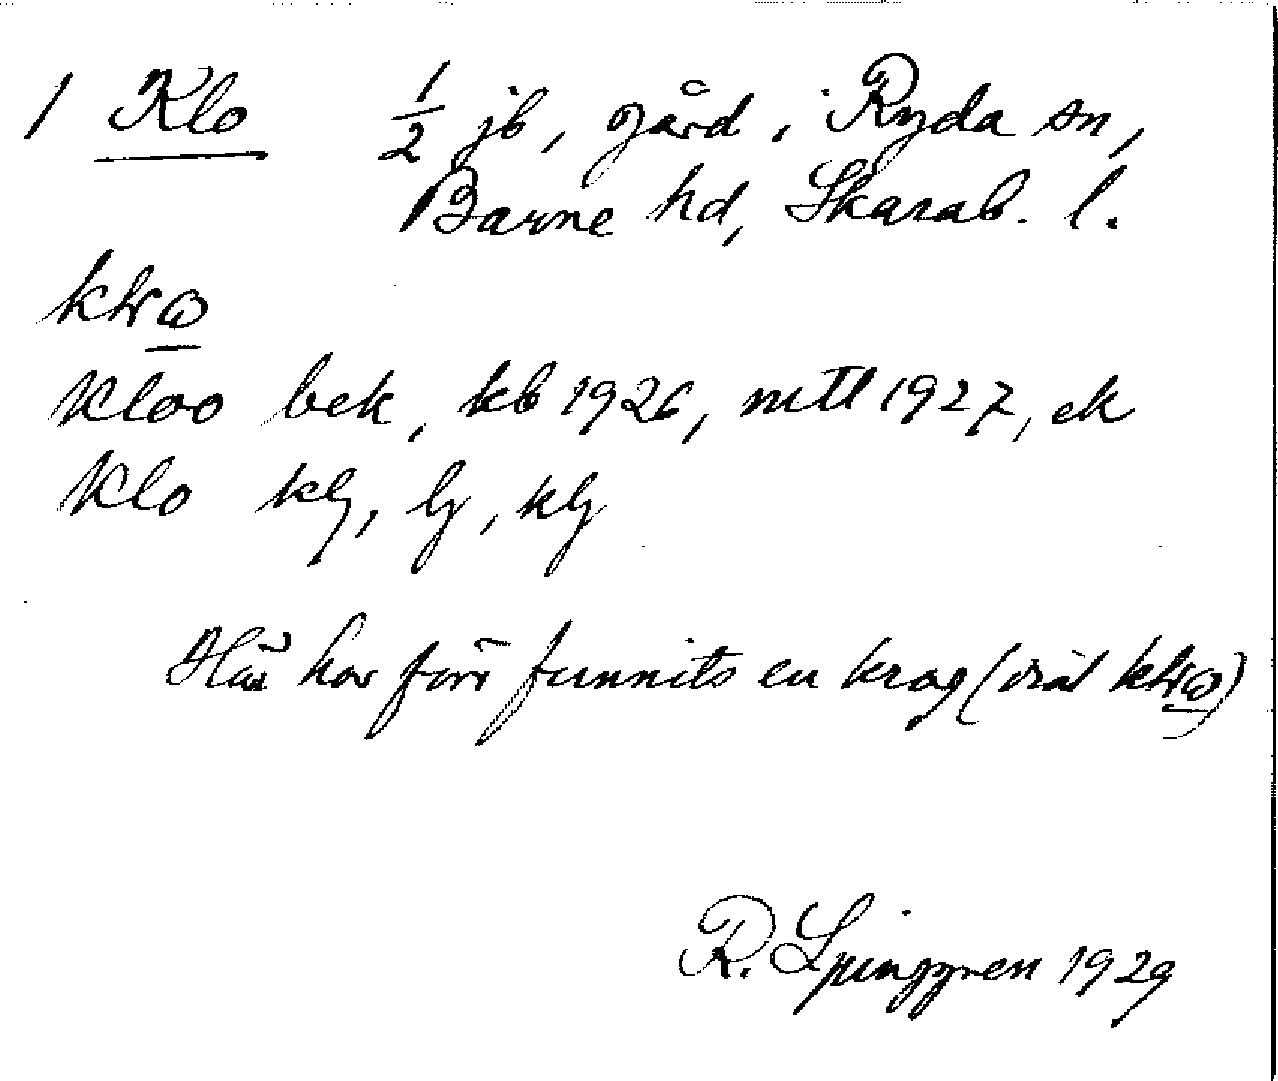 1 Klo 1/2 jb, gård i Ryda sn,
Barne hd, Skarab. l.
Kloo bek, kb 1926, mtl 1927, ek
Klo klj, lj, klj
Här har förr funnits en krog (
R. Ljunggren 1929